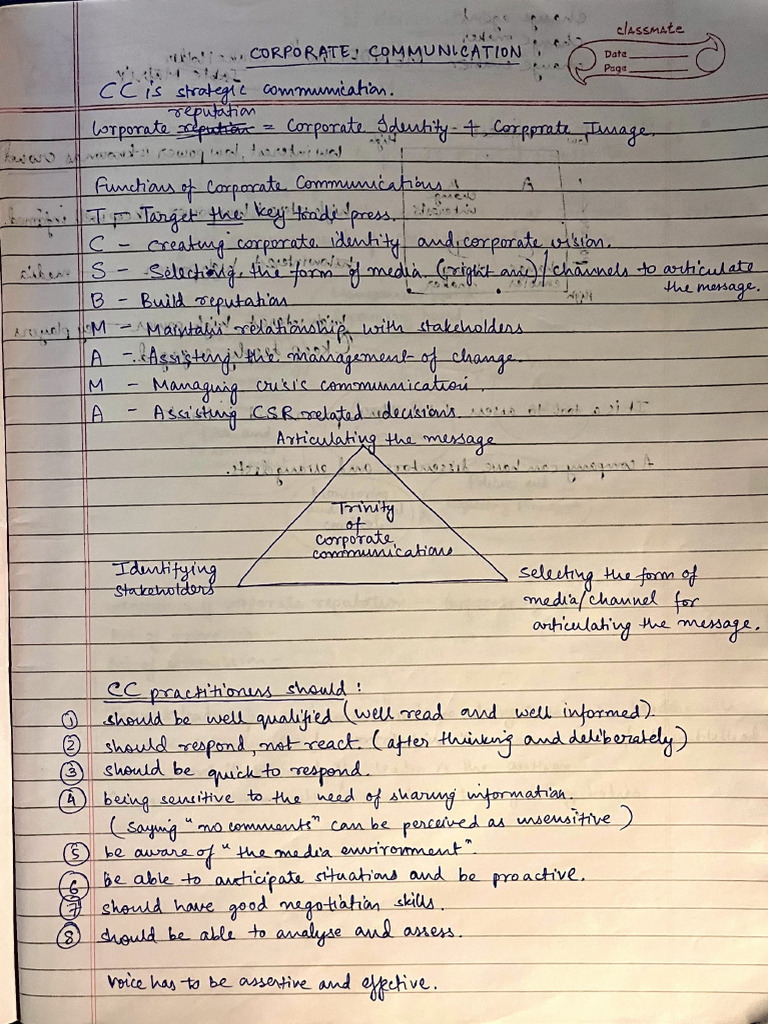 classmate
Date
Page
CORPORATE COMMUNICATION
CC is strategic communication.
reputation
Corporate = Corporate Identity + Corporate Image.
Functions of Corporate Communications
T - Target the key trade press.
C - Creating corporate identity and corporate vision.
S - Selecting the form of media (right one)/channels to articulate
the message.
B - Build reputation
M - Maintain relationship with stakeholders
A - Assisting the management of change.
M - Managing crisis communication.
A - Assisting CSR related decisions.
Articulating the message
Trinity
of
corporate
communications
Identifying
stakeholders
Selecting the form of
media/channel for
articulating the message.
CC practitioners should:
① should be well qualified (well read and well informed).
② should respond, not react. (after thinking and deliberately)
③ should be quick to respond.
④ being sensitive to the need of sharing information.
(saying "no comments" can be perceived as insensitive)
⑤ be aware of "the media environment".
⑥ be able to anticipate situations and be proactive.
⑦ should have good negotiation skills.
⑧ should be able to analyse and assess.
Voice has to be assertive and effective.